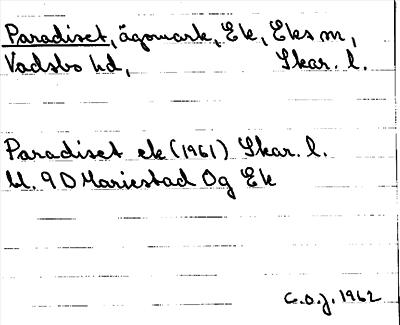 Paradiset, ägomark, Ek, Eks m,
Vadsbo hd, Skar. l.
Paradiset ek (1961) Skar. l.
bl. 9D Mariestad Og Ek
C.O.J. 1962